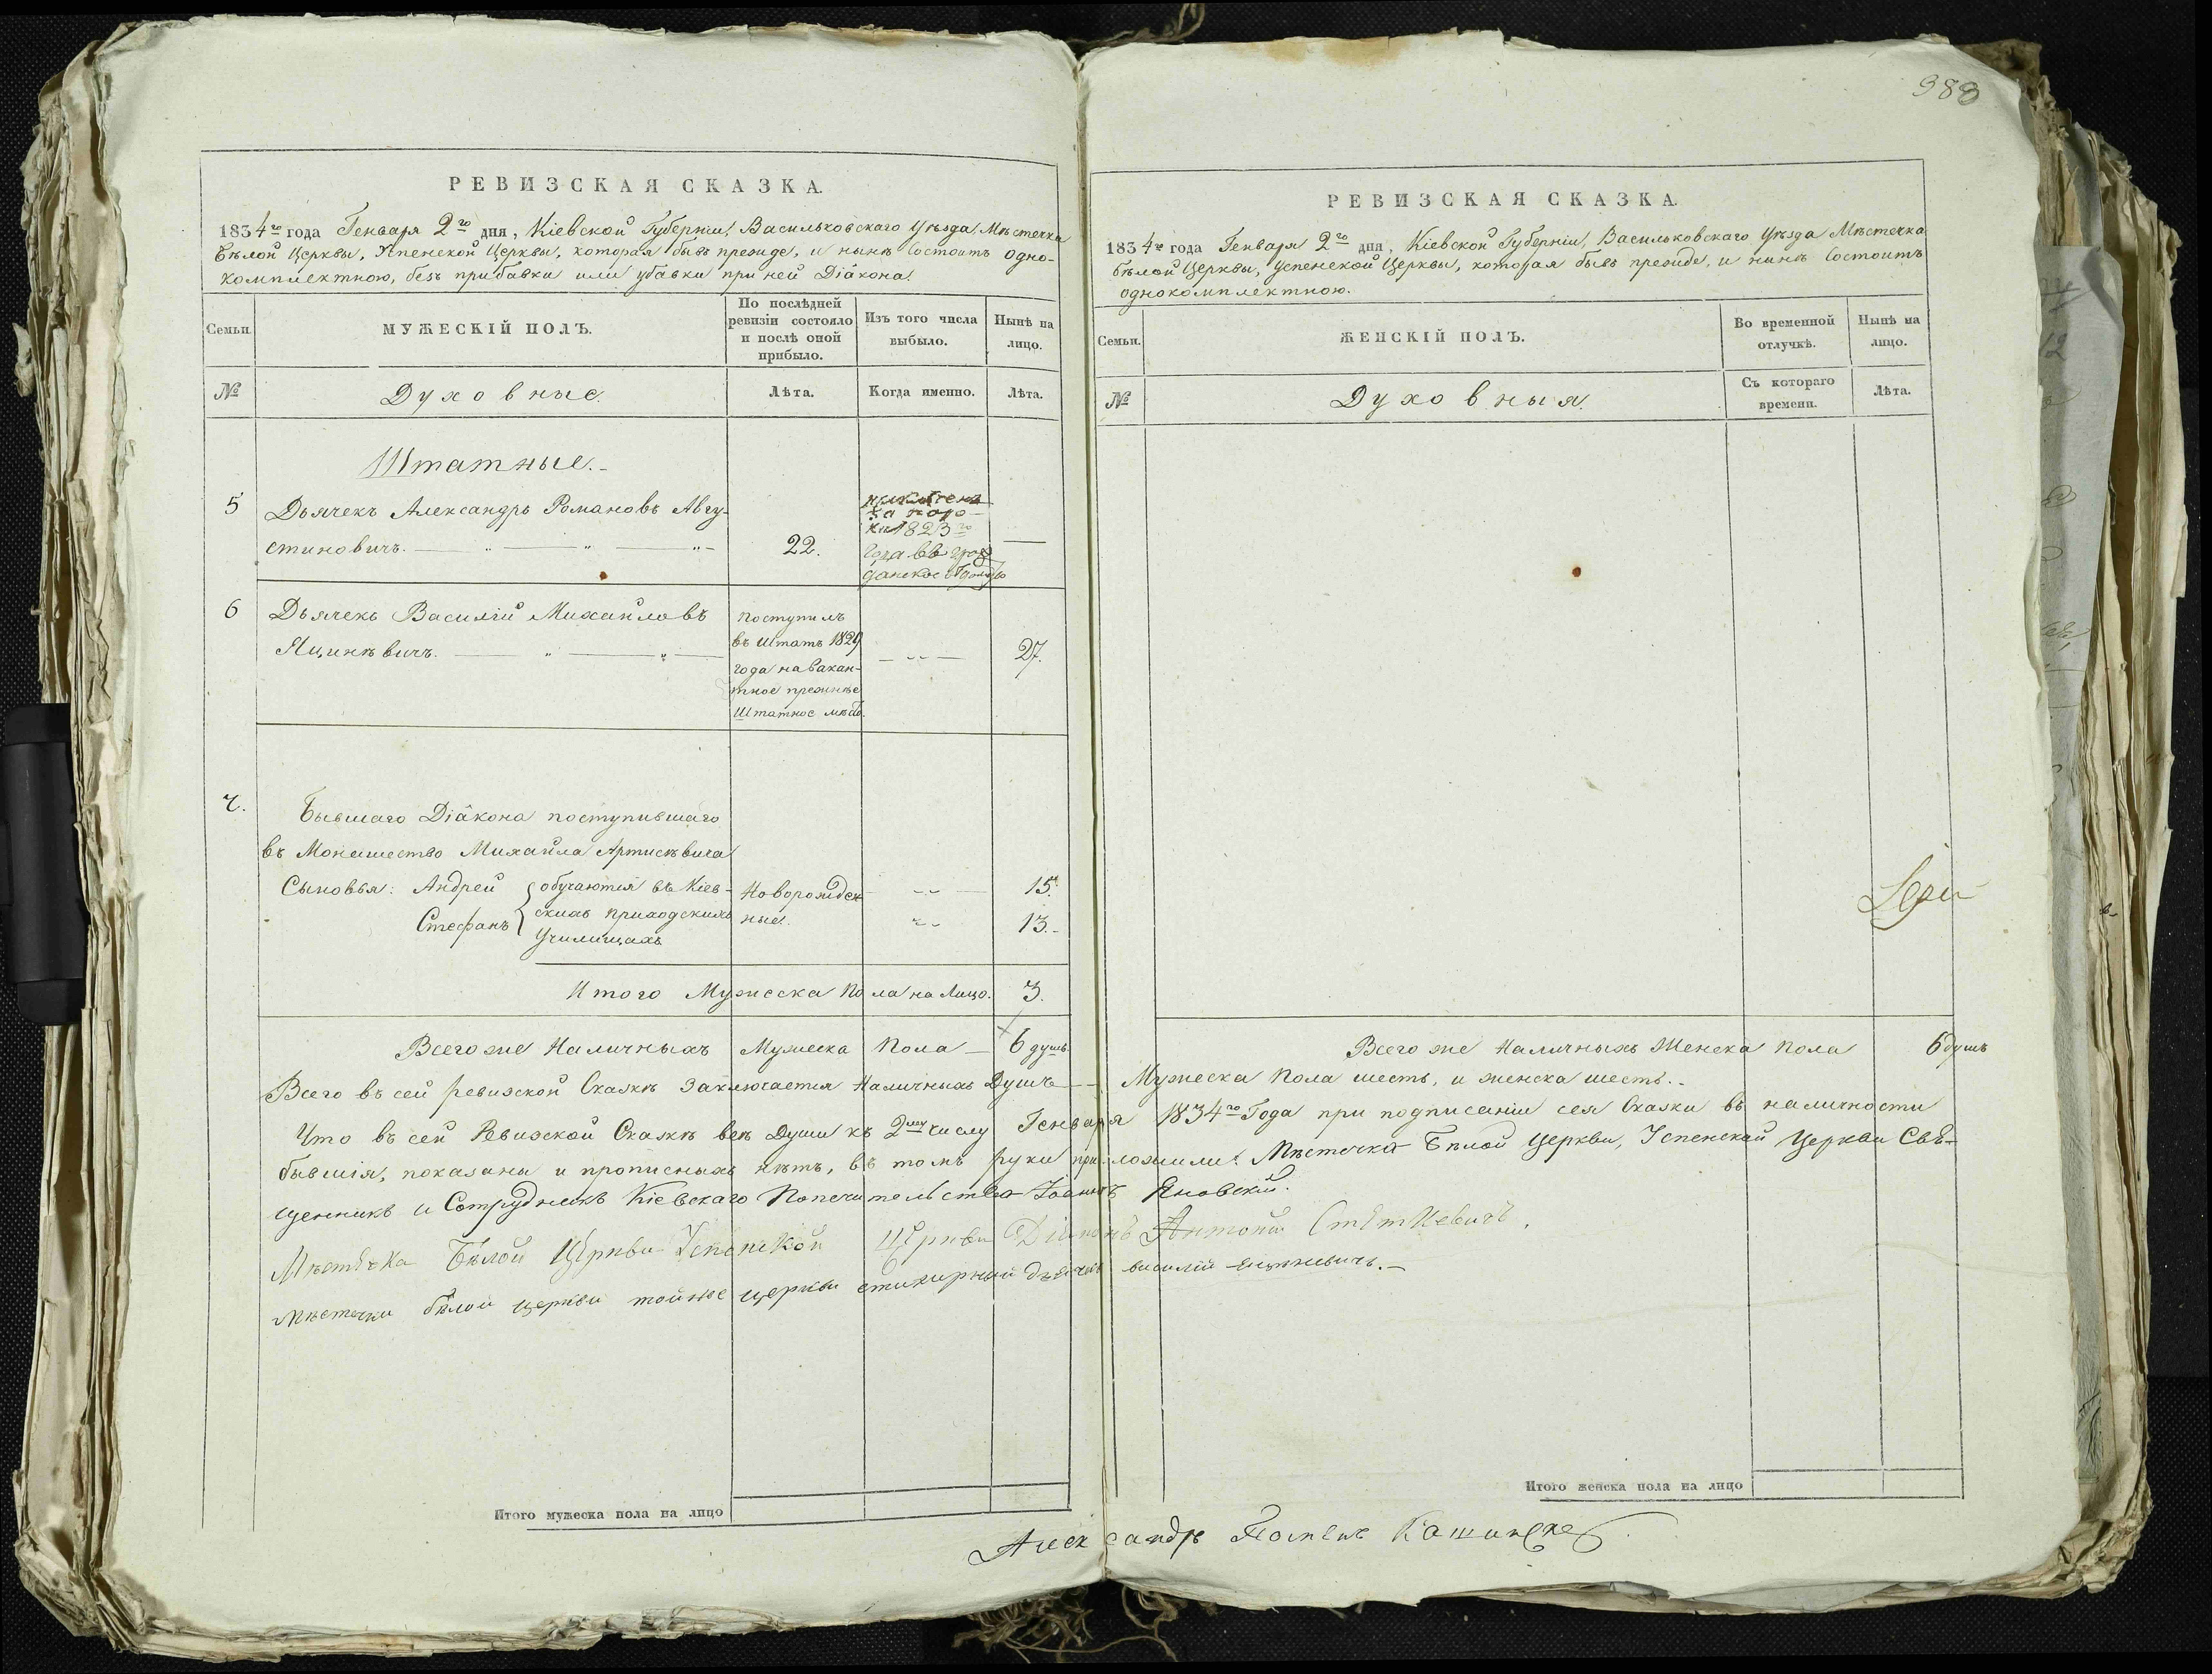 РЕВИЗСКАЯ СКАЗКА.
1834го года Генваря 2го дня, Кіевской Губерніи, Васильковскаго Уѣзда Мѣстечка
Бѣлой Церквы, Успенской Церквы, которая бывъ прежде, и нынѣ состоитъ одно-
комплектною, безъ прибавки или убавки при ней Діакона.
Семьи.
МУЖЕСКІЙ ПОЛЪ.
По послѣдней
ревизіи состояло
и послѣ оной
прибыло.
Изъ того числа
выбыло.
Нынѣ на
лицо.
№
Духовные.
Лѣта.
Когда именно.
Лѣта.
Штатные.-
5
Дьячекъ Александръ Романовъ Авгу-
стиновичъ.
22.
за поро-
ки 1823го
года въ граж
данское
6
Дьячекъ Василій Михайловъ
Яцинѣвичъ.
поступилъ
въ Штатъ 1829
года на вакан-
тное прежнѣе
Штатное мѣсто.
27.
7.
Бывшаго Діакона поступившаго
въ Монашество Михайла Артисѣвича
Сыновья: Андрей
Стефанъ
обучаются въ Кіев-
скихъ приходскихъ
Училищахъ
Новорожден
ные.
15.
13.-
Итого Мужеска Пола на Лицо. 3.
Всего же Наличныхъ Мужеска Пола — 6 душъ.
Всего въ сей ревизской Сказкѣ заключается Наличныхъ Душъ — Мужеска Пола шесть, и женска шесть.-
Что въ сей Ревизской Сказкѣ всѣ Души къ 2му числу Генваря 1834го Года при подписаніи сея Сказки въ наличности
бывшія, показаны и прописныхъ нѣтъ, въ томъ руки приложили: Мѣстечка Бѣлой Церкви, Успенской Церкви Свя-
щенникъ и Сотрудникъ Кіевскаго Попечительства Іоаннъ Яновскій.
Мѣстечка Бѣлой Церкви Успенской Церкви Діаконъ Антоній
мѣстечки бѣлой церкви тойже церкви стихирный дьячекъ василій яцинкевичъ.—
Итого мужеска пола на лицо
388
РЕВИЗСКАЯ СКАЗКА.
1834го года Генваря 2го дня, Кіевской Губерніи, Васильковскаго Уѣзда Мѣстечка
Бѣлой Церквы, Успенской Церквы, которая бывъ прежде, и нынѣ состоитъ
однокомплектною.
Семьи.
ЖЕНСКІЙ ПОЛЪ.
Во временной
отлучкѣ.
Нынѣ на
лицо.
№
Духовныя.
Съ котораго
времени.
Лѣта.
Всего же Наличныхъ Женска пола 6 душъ
Итого женска пола на лицо
Александръ